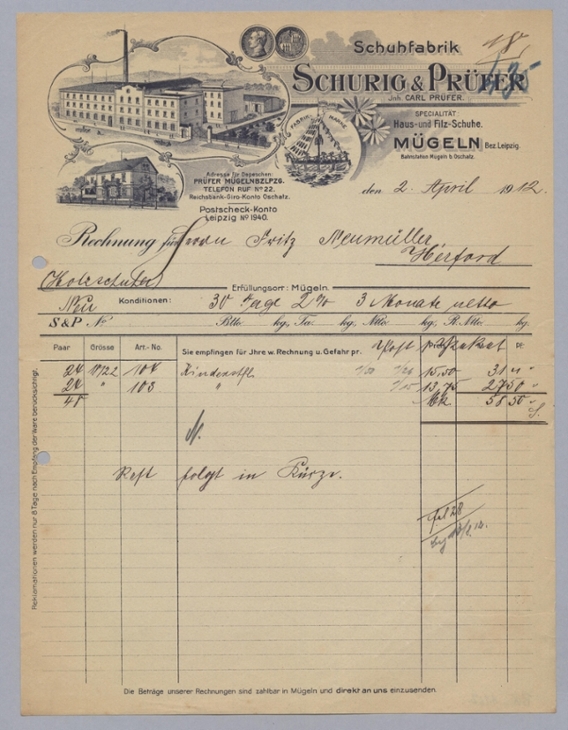 Schuhfabrik
SCHURIG & PRÜFER
Inh. CARL PRÜFER.
SPECIALITÄT:
Haus- und Filz-Schuhe.
MÜGELN Bez. Leipzig.
Bahnstation Mügeln b. Oschatz.
FABRIK MARKE
Adresse für Depeschen:
PRÜFER MÜGELNBZLPZG.
TELEFON RUF Nº 22.
Reichsbank-Giro-Konto Oschatz.
Postscheck-Konto
Leipzig Nº 1940.
den 2. April 1912.
Rechnung für Frau Fritz Neumüller
Herford
Erfüllungsort: Mügeln.
Neu Konditionen: 30 Tage 2% 3 Monate netto
S & P. Nº Btto. kg, Tra. kg, Ntto. kg, R. Ntto. kg.
Paar Grösse Art.-No. Sie empfingen für Ihre w. Rechnung u. Gefahr pr. Post
24 104 15,50 31 "
24 " 103 " 13,75 27 50 "
48 Mk 58 50 "
Rest folgt in Kürze.
Reklamationen werden nur 8 Tage nach Empfang der Ware berücksichtigt.
Die Beträge unserer Rechnungen sind zahlbar in Mügeln und direkt an uns einzusenden.